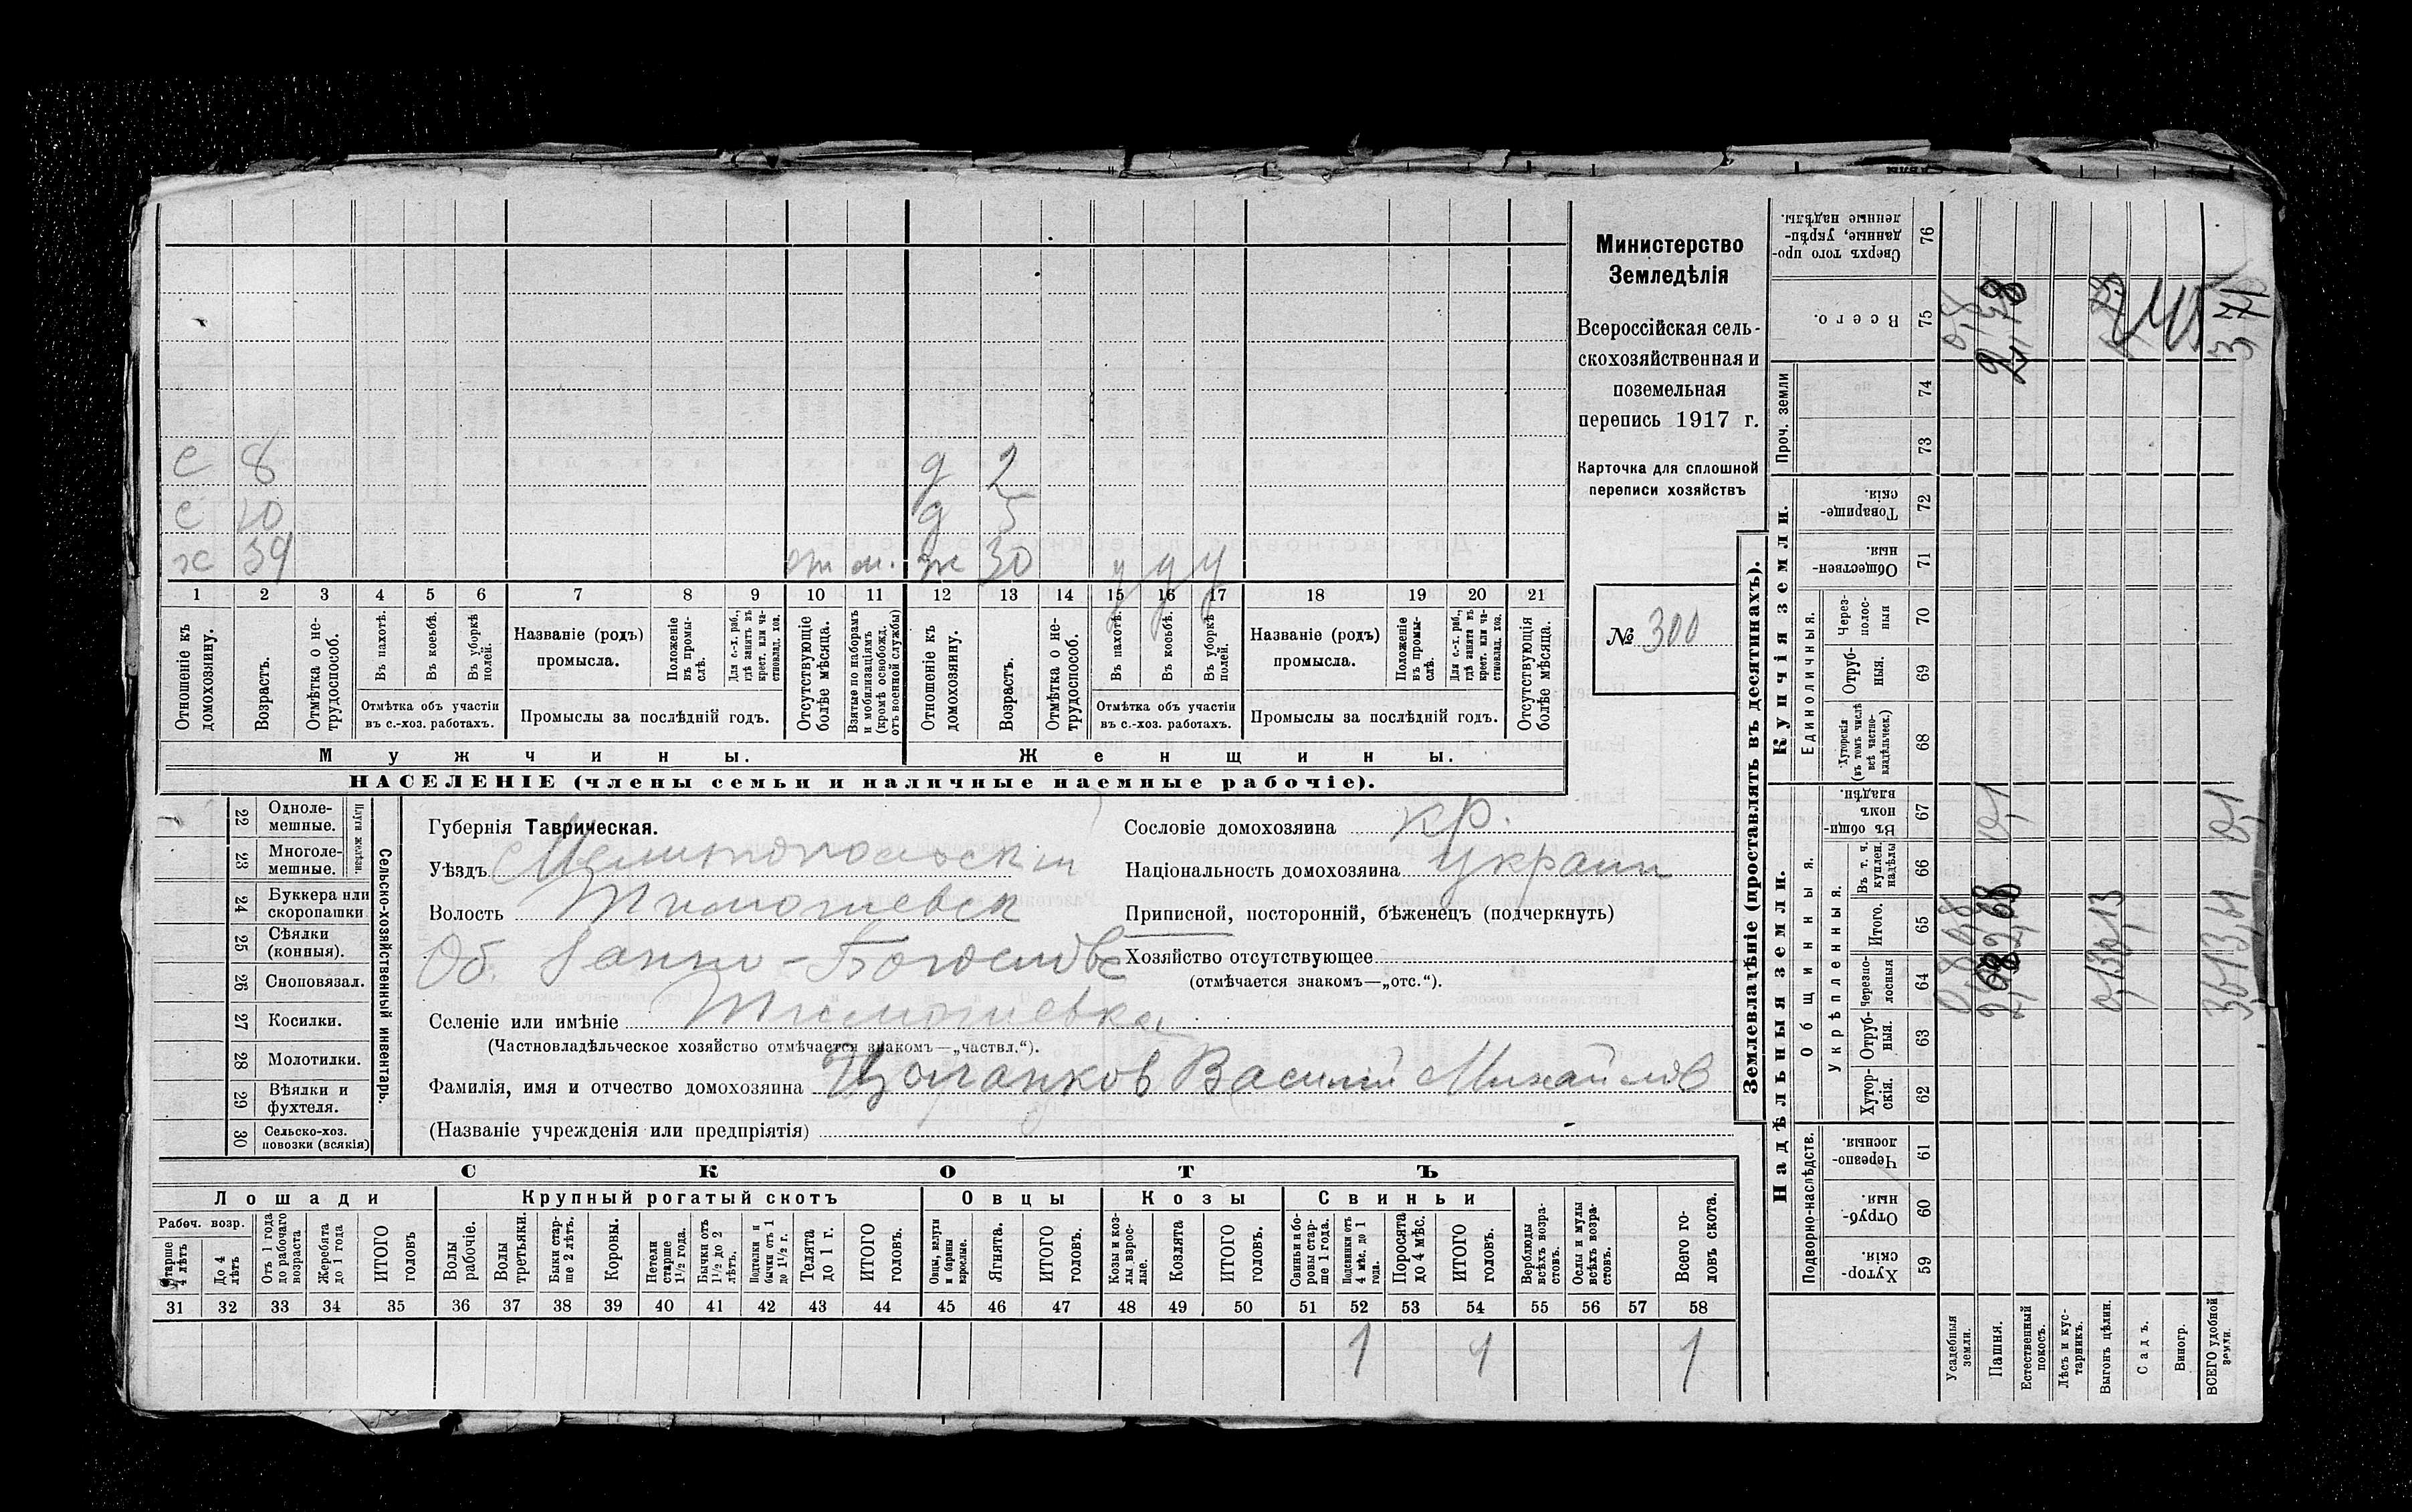 с 8 д 2
с 10 д 5
х 39 от м. ж 30 у у у
1 2 3 4 5 6 7 8 9 10 11 12 13 14 15 16 17 18 19 20 21
Отношеніе къ домохозяину.
Возрастъ.
Отмѣтка о нетрудоспособ.
Въ пахотѣ.
Въ косьбѣ.
Въ уборкѣ полей.
Отмѣтка объ участіи
въ с.-хоз. работахъ.
Названіе (родъ)
промысла.
Положеніе въ промыслѣ.
Для с.-х. раб., гдѣ занятъ въ крест. или частновлад. хоз.
Промыслы за послѣдній годъ.
Отсутствующіе болѣе мѣсяца.
Взятые по наборамъ и мобилизаціямъ (кромѣ освобожд. отъ военной службы)
Отношеніе къ домохозяину.
Возрастъ.
Отмѣтка о нетрудоспособ.
Въ пахотѣ.
Въ косьбѣ.
Въ уборкѣ полей.
Отмѣтка объ участіи
въ с.-хоз. работахъ.
Названіе (родъ)
промысла.
Положеніе въ промыслѣ.
Для с.-х. раб., гдѣ занята въ крест. или частновлад. хоз.
Промыслы за послѣдній годъ.
Отсутствующія болѣе мѣсяца.
Мужчины. Женщины.
НАСЕЛЕНІЕ (члены семьи и наличные наемные рабочіе).
Министерство
Земледѣлія
Всероссійская сель-
скохозяйственная и
поземельная
перепись 1917 г.
Карточка для сплошной
переписи хозяйствъ
№ 300
22 Однолемешные.
23 Многолемешные.
Плуги желѣзн.
24 Буккера или скоропашки
25 Сѣялки (конныя).
26 Сноповязал.
27 Косилки.
28 Молотилки.
29 Вѣялки и фухтеля.
30 Сельско-хоз. повозки (всякія)
Сельско-хозяйственный инвентарь.
Губернія Таврическая.
Уѣздъ Мелитопольскій
Волость Тимошевск
Об. Іанно-Богословс
Селеніе или имѣніе Тимошевка
(Частновладѣльческое хозяйство отмѣчается знакомъ—„частвл.“).
Фамилія, имя и отчество домохозяина Цыганков Василий Михайлов
(Названіе учрежденія или предпріятія)
Сословіе домохозяина кр.
Національность домохозяина украин
Приписной, посторонній, бѣженецъ (подчеркнуть)
Хозяйство отсутствующее
(отмѣчается знакомъ—„отс.“).
СКОТЪ
Лошади Крупный рогатый скотъ Овцы Козы Свиньи
Рабоч. возр.
Старше 4 лѣтъ
До 4 лѣтъ
Отъ 1 года до рабочаго возраста
Жеребята до 1 года
ИТОГО головъ
Волы рабочіе.
Волы третьяки.
Быки старше 2 лѣтъ.
Коровы.
Нетели старше 1½ года.
Бычки отъ 1½ до 2 лѣтъ.
Подтелки и бычки отъ 1 до 1½ г.
Телята до 1 г.
ИТОГО головъ.
Овцы, валухи и бараны взрослые.
Ягнята.
ИТОГО головъ.
Козы и козлы взрослые.
Козлята
ИТОГО головъ.
Свиньи и боровы старше 1 года.
Подсвинки отъ 4 мѣс. до 1 года.
Поросята до 4 мѣс.
ИТОГО головъ.
Верблюды всѣхъ возрастовъ.
Ослы и мулы всѣхъ возрастовъ.
Всего головъ скота.
31 32 33 34 35 36 37 38 39 40 41 42 43 44 45 46 47 48 49 50 51 52 53 54 55 56 57 58
1 1 1
Землевладѣніе (проставлять въ десятинахъ).
Надѣльныя земли. Купчія земли. Проч. земли
Подворно-наслѣдств.
Общинныя.
Укрѣпленныя.
Единоличныя.
Хуторскія. 59
Отрубныя. 60
Черезполосныя. 61
Хуторскія. 62
Отрубныя. 63
Черезполосныя 64
Итого. 65
Въ т. ч. куплен. надѣлы 66
Въ общинномъ владѣн. 67
Хуторскія (въ томъ числѣ всѣ частновладѣльческ.) 68
Отрубныя. 69
Черезполосныя 70
Общественныя. 71
Товарищескія. 72
73
74
Всего. 75
Сверхъ того проданные, укрѣпленные надѣлы. 76
Усадебныя земли.
Пашня.
Естественный покосъ.
Лѣсъ и кустарникъ.
Выгонъ цѣлин.
Садъ.
Виногр.
ВСЕГО удобной земли.